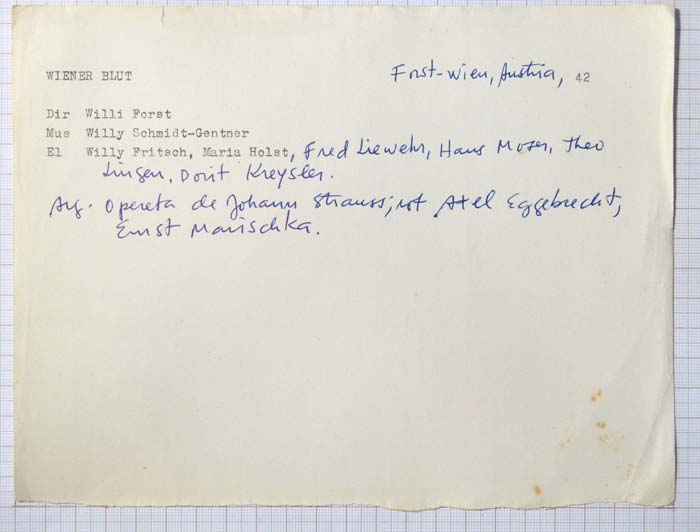 WIENER BLUT Forst-Wien, Austria, 42
Dir Willi Forst
Mus Willy Schmidt-Gentner
El Willy Fritsch, Maria Holst, Fred Liewehr, Hans Moser, Theo
Lingen, Dorit Kreysler.
Arg. Opereta de Johann Strauss; rot Axel Eggebrecht,
Ernst Marischka.